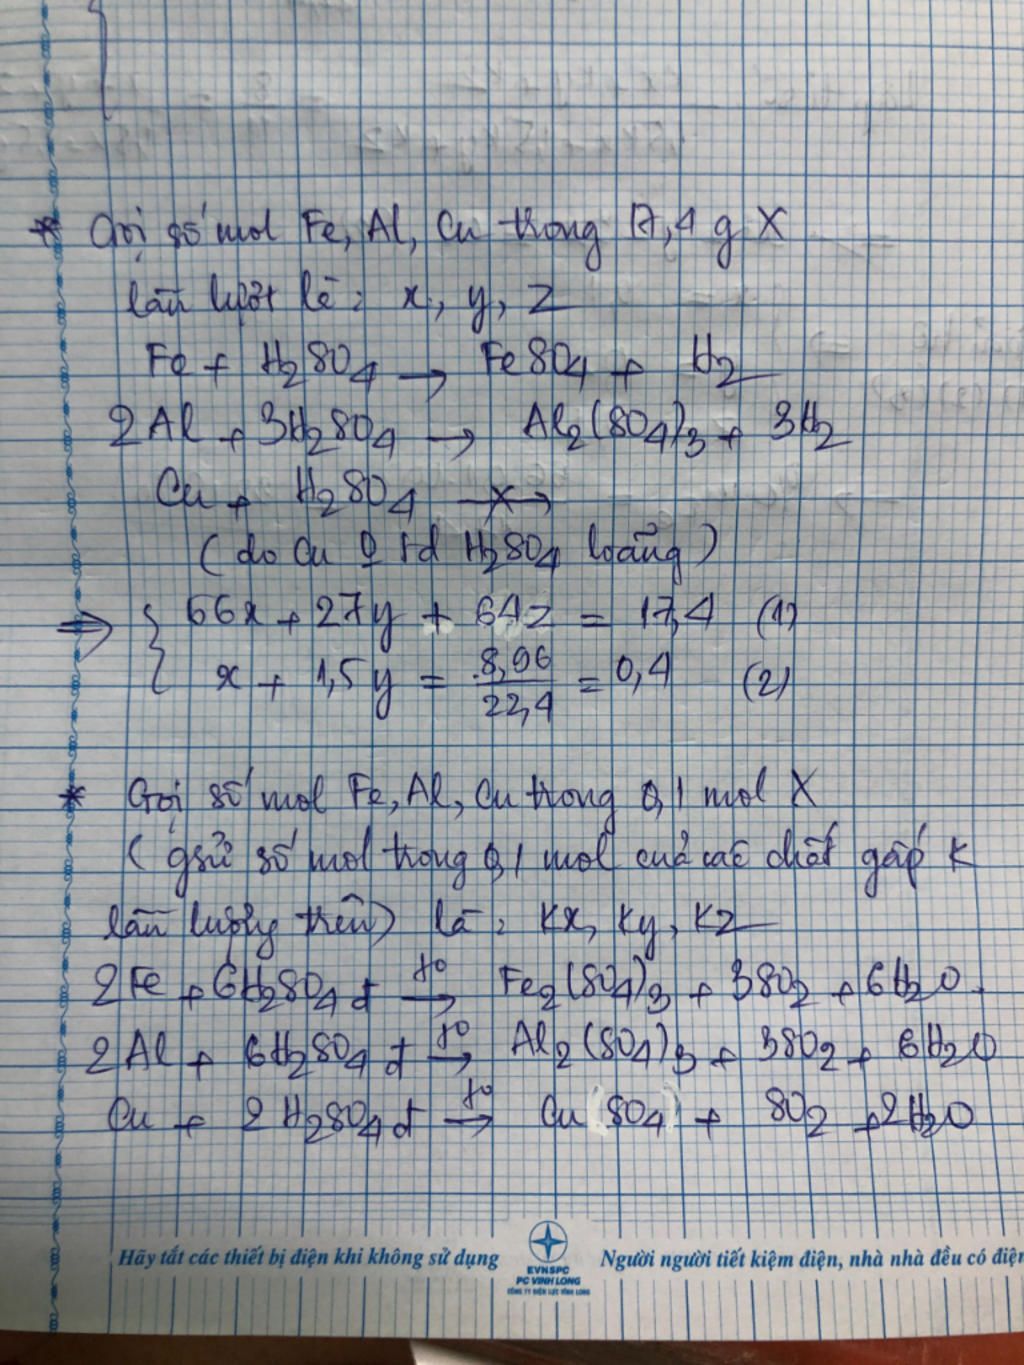 * Gọi số mol Fe, Al, Cu trong 17,4 g X
lần lượt là: x, y, z
Fe + H2SO4 → FeSO4 + H2
2Al + 3H2SO4 → Al2(SO4)3 + 3H2
Cu + H2SO4 -x->
(do Cu 0 td H2SO4 loãng)
=> { 56x + 27y + 64z = 17,4 (1)
x + 1,5y = 8,96 / 22,4 = 0,4 (2)
* Gọi số mol Fe, Al, Cu trong 0,1 mol X
(gsử số mol trong 0,1 mol của các chất gấp k
lần lượng trên) là: kx, ky, kz
2Fe + 6H2SO4 đ t° → Fe2(SO4)3 + 3SO2 + 6H2O.
2Al + 6H2SO4 đ t° → Al2(SO4)3 + 3SO2 + 6H2O
Cu + 2H2SO4 đ t° → Cu(SO4) + SO2 + 2H2O
Hãy tắt các thiết bị điện khi không sử dụng
EVNSPC
PC VINH LONG
CÔNG TY ĐIỆN LỰC VĨNH LONG
Người người tiết kiệm điện, nhà nhà đều có điện